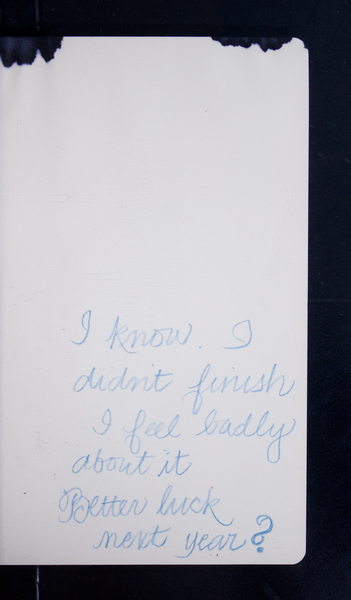 I know. I
didn't finish
I feel badly
about it
Better luck
next year?